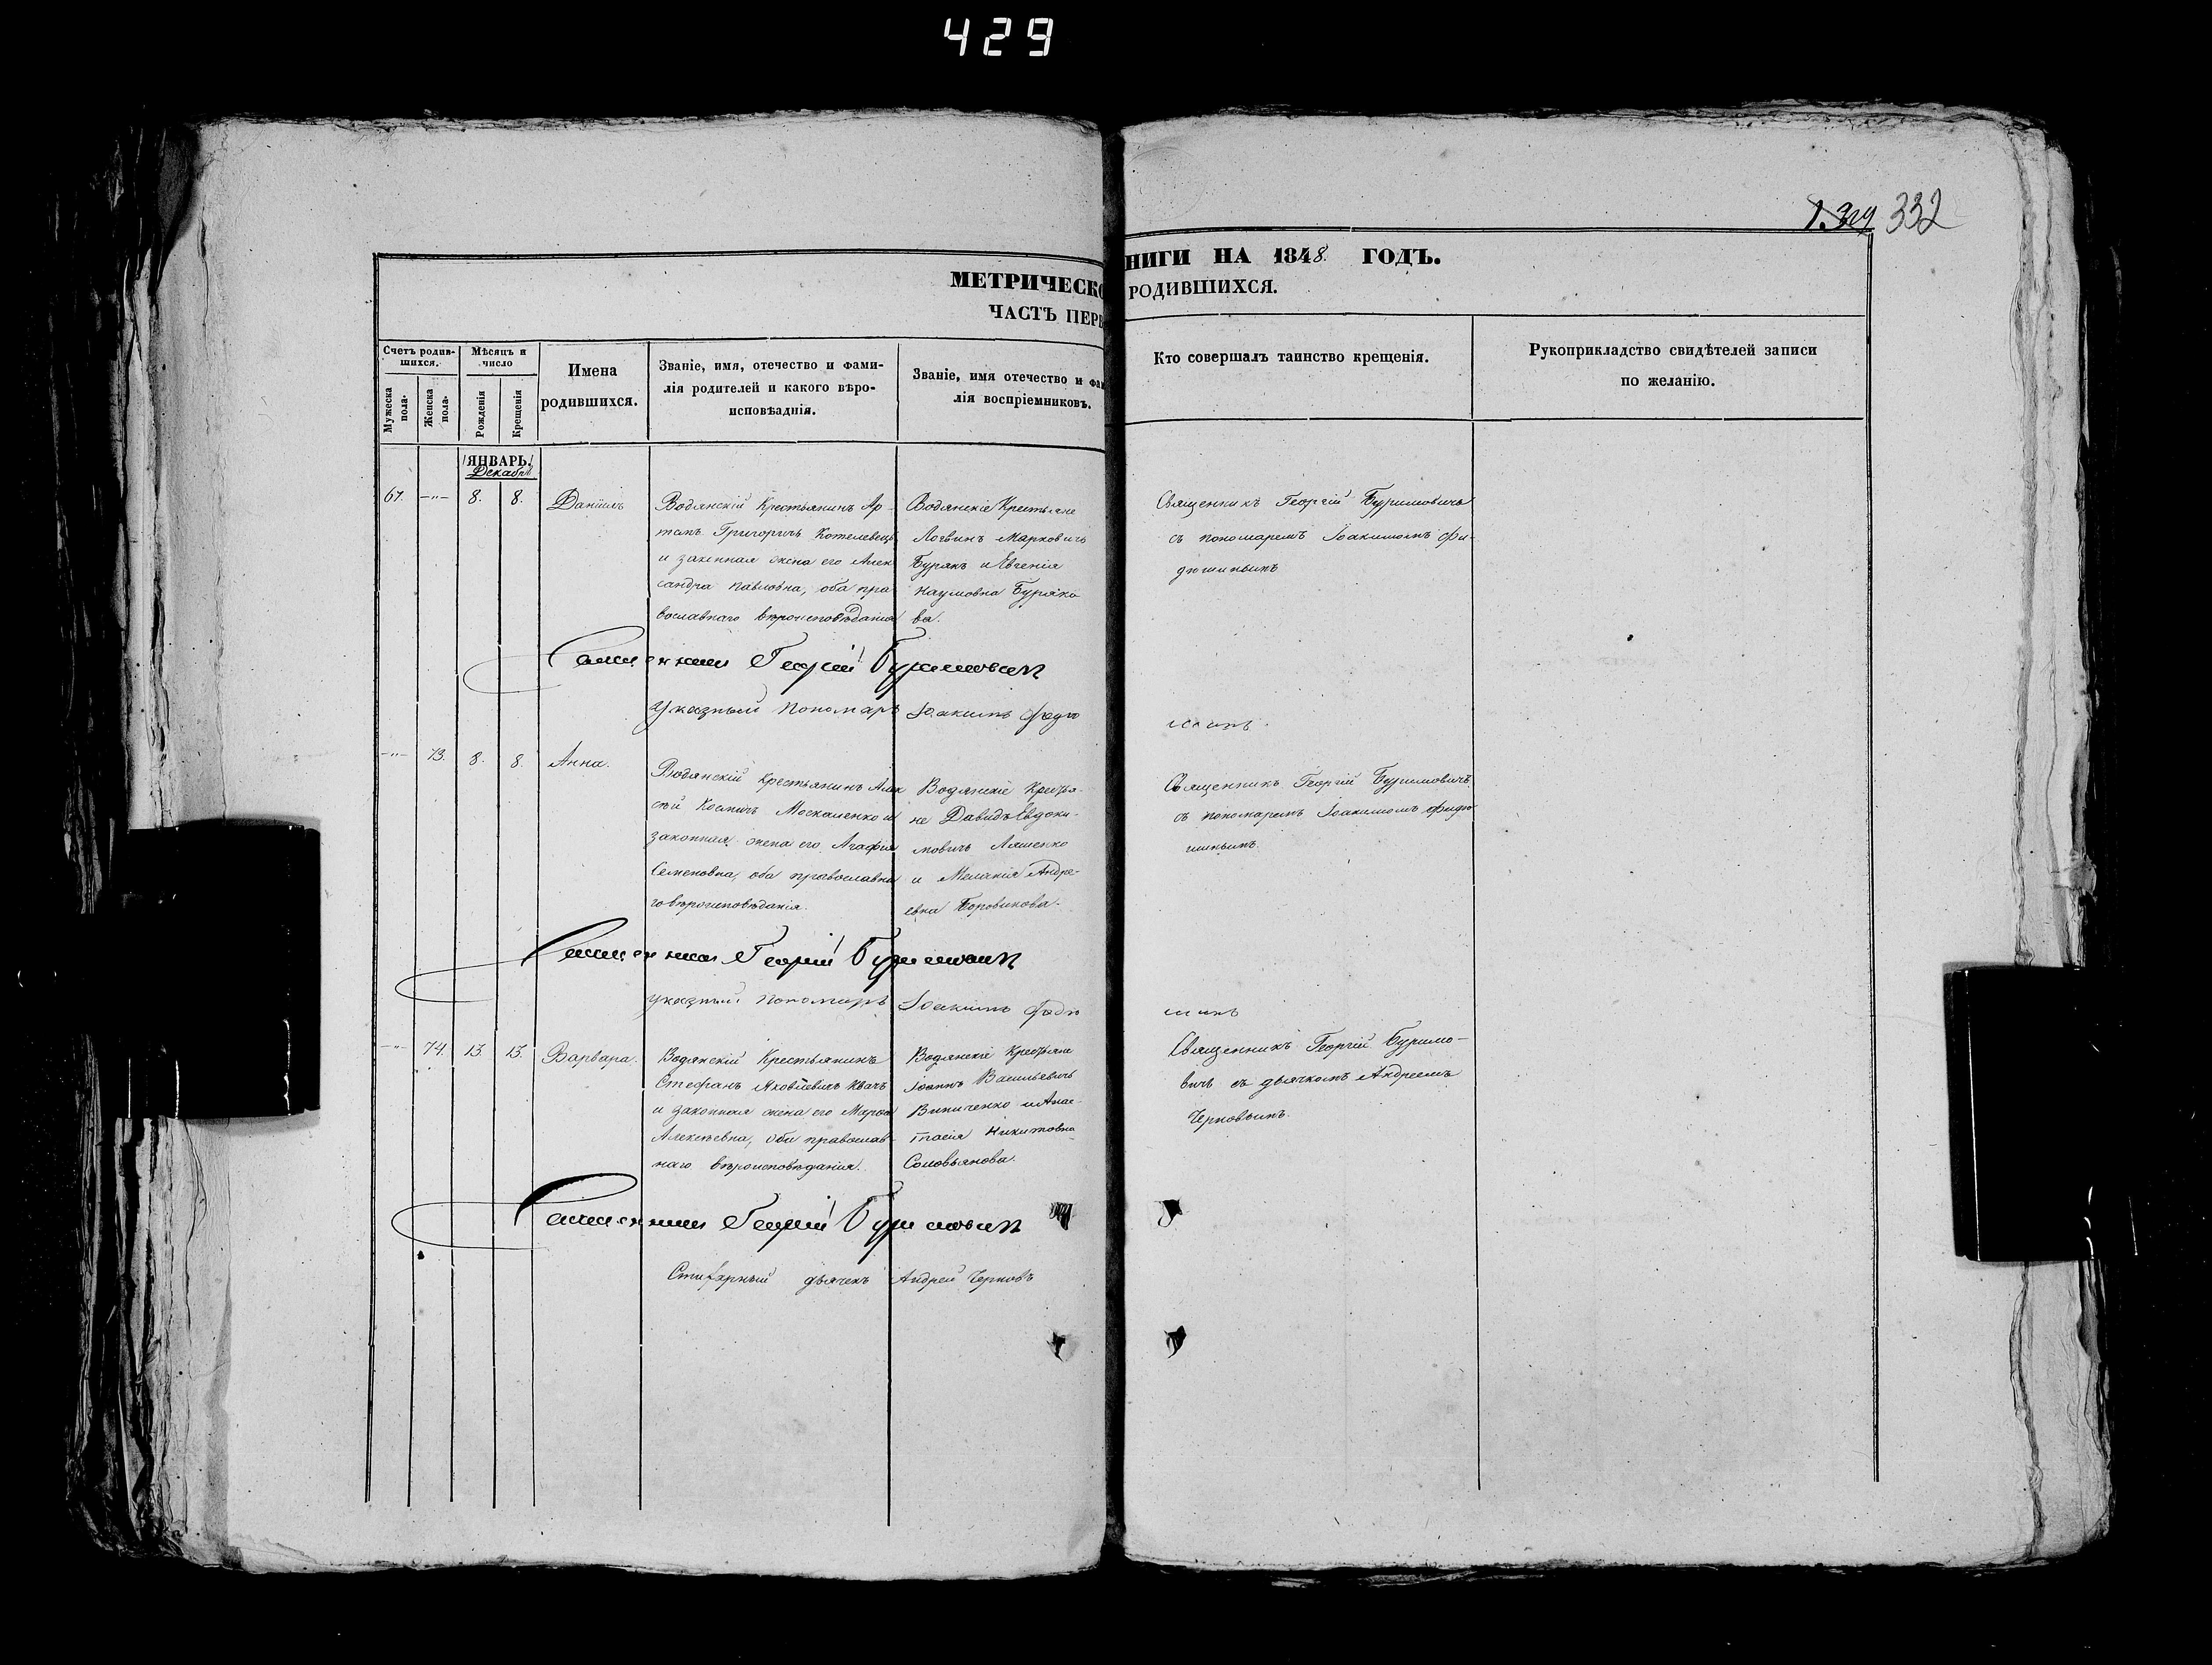 429
1.329 332
МЕТРИЧЕСКО
НИГИ НА 1848. ГОДЪ.
ЧАСТЬ ПЕРВ
РОДИВШИХСЯ.
Счетъ родив-
шихся.
Мужеска
пола.
Женска
пола.
Мѣсяцъ и
число
Рожденія
Крещенія
Имена
родившихся.
Званіе, имя, отечество и фами-
лія родителей и какого вѣро-
исповѣданія.
Званіе, имя отечество и фам
лія воспріемниковъ.
Кто совершалъ таинство крещенія.
Рукоприкладство свидѣтелей записи
по желанію.
ЯНВАРЬ.
Декабрь
67. -"- 8. 8. Даніилъ
Водянскій Крестьянинъ Ар-
темъ Григорьичъ Котелевецъ
и законная жена его Алек
сандра Павловна, оба пра
вославнаго вѣроисповѣданія
Водянскіе Крестьяне
Логвинъ Марковичъ
Бурякъ и Евгенія
Наумовна Буряко
ва.
Священникъ Георгій Буримовичъ
съ пономаремъ Іоакимомъ Фи-
дюшинымъ
Священникъ Георгій Буримович
Указный Пономарь Іоакимъ Федю
шинъ.
-"- 73. 8. 8. Анна.
Водянскій Крестьянинъ Алек
сѣй Космичъ Москаленко и
законная жена его Агафія
Семеновна, оба православна
го вѣроисповѣданія.
Водянскіе Крестья-
не Давидъ Евдоки-
мовичъ Ляшенко
и Меланія Андре-
евна Боровикова.
Священникъ Георгій Буримовичъ
съ пономаремъ Іоакимомъ Фидю
шинымъ.
Священник Георгій Буримович
указный Пономарь Іоакимъ Федю
шинъ
-"- 74. 13. 13. Варвара.
Водянскій Крестьянинъ
Стефанъ Яковлевичъ Квачъ
и законная жена его Марфа
Алексѣевна, оба православ-
наго вѣроисповѣданія.
Водянскіе Крестьяне
Іоаннъ Васильевичъ
Виниченко и Анас-
тасія Никитовна
Соловьянова.
Священникъ Георгій Буримо-
вичъ съ дьячкомъ Андреемъ
Черновымъ.
Священник Георгій Буримович
Стихарный дьячекъ Андрей Черновъ